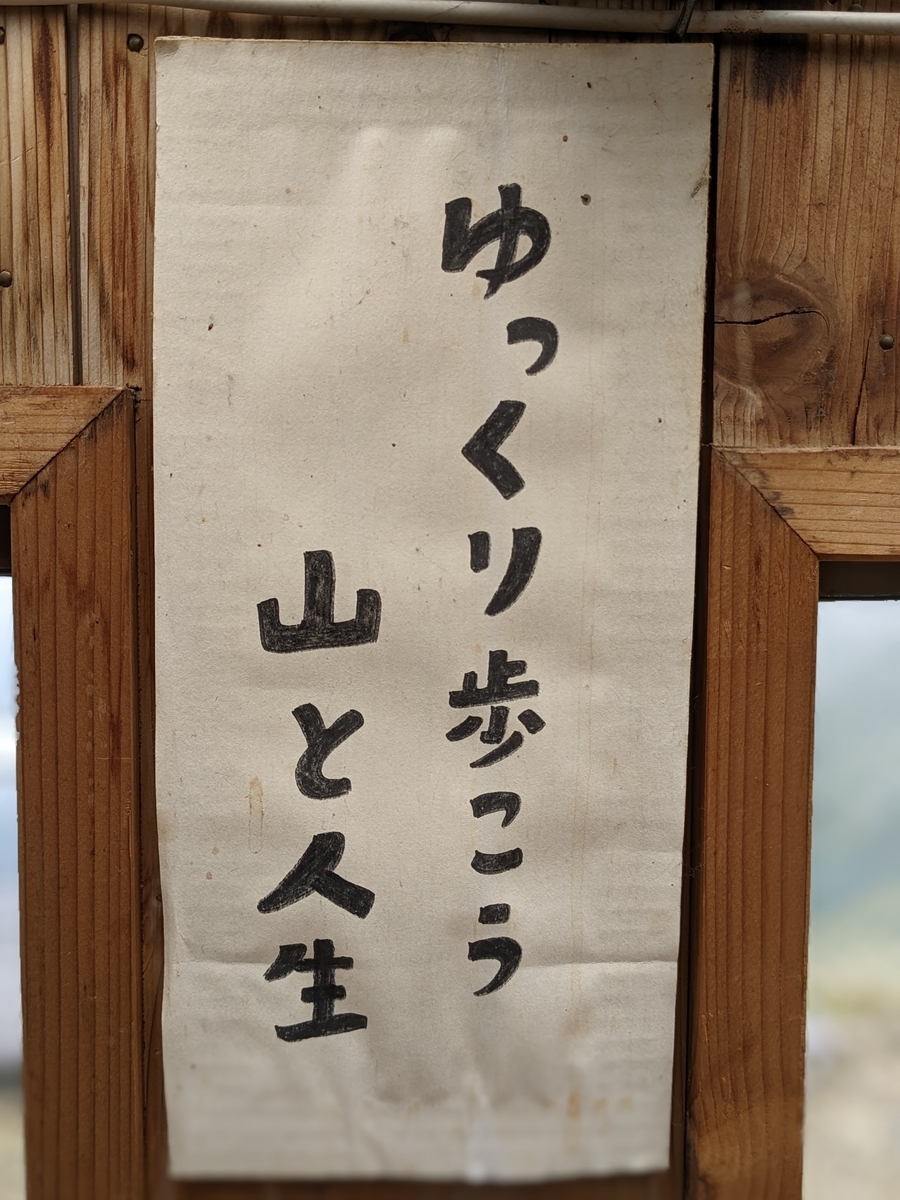 ゆっくり歩こう
山と人生